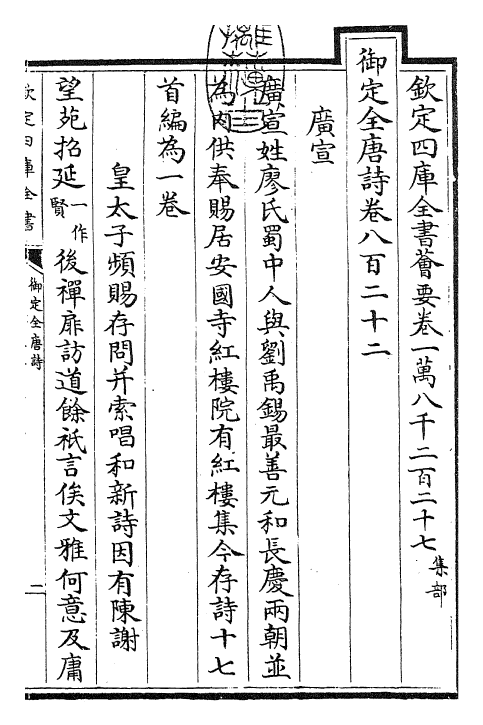 欽定四庫全書薈要卷一萬八千二百二十七集部
御定全唐詩卷八百二十二
廣宣
廣宣姓廖氏蜀中人與劉禹錫最善元和長慶兩朝並
為內供奉賜居安國寺紅樓院有紅樓集今存詩十七
首編為一卷
皇太子頻賜存問并索唱和新詩因有陳謝
望苑招延一作賢後禪扉訪道餘祇言俟文雅何意及庸
欽定四庫全書
御定全唐詩